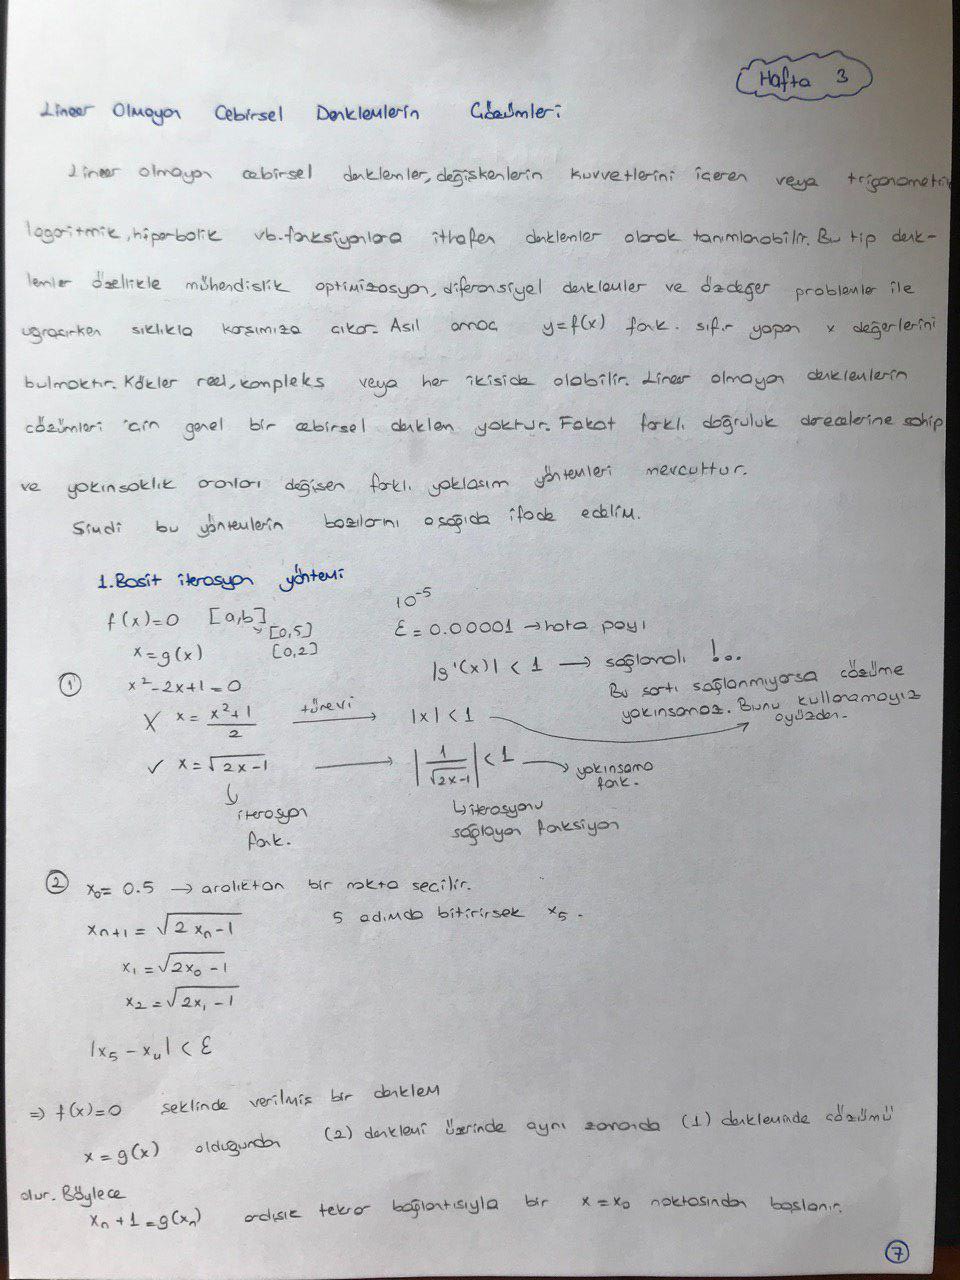 Hafta 3
Lineer Olmayan Cebirsel Denklemlerin Çözümleri
Lineer olmayan cebirsel denklemler, değişkenlerin kuvvetlerini içeren veya trigonometrik
logaritmik, hiperbolik vb. fonksiyonlara ithafen denklemler olarak tanımlanabilir. Bu tip denk-
lemler özelikle mühendislik optimizasyon, diferansiyel denklemler ve özdeğer problemler ile
uğraşırken sıklıkla karşımıza çıkar. Asıl amaç y=f(x) fonk. sıfır yapan x değerlerini
bulmaktır. Kökler reel, kompleks veya her ikiside olabilir. Lineer olmayan denklemlerin
çözümleri için genel bir cebirsel denklem yoktur. Fakat farklı doğruluk derecelerine sahip
ve yakınsaklık oranları değişen farklı yaklaşım yöntemleri mevcuttur.
Şimdi bu yöntemlerin bazılarını aşağıda ifade edelim.
1. Basit iterasyon yöntemi
f(x)=0 [a,b] 10⁻⁵
[0,5] ε = 0.00001 → hata payı
x=g(x) [0,2]
|g'(x)| < 1 → sağlamalı !..
① x²-2x+1=0
Bu şartı sağlanmıyorsa çözüme
yakınsamaz. Bunu kullanamayız
oyüzden.
X x = (x²+1)/2 türevi → |x| < 1
✓ x = √(2x-1) → |1/√(2x-1)| < 1 → yakınsama
fonk.
↳ iterasyonu
sağlayan fonksiyon
iterasyon
fonk.
② x₀ = 0.5 → aralıktan bir nokta seçilir.
xₙ₊₁ = √(2xₙ-1) 5 adımda bitirirsek x₅.
x₁ = √(2x₀-1)
x₂ = √(2x₁-1)
|x₅ - x₄| < ε
⇒ f(x)=0 şeklinde verilmiş bir denklem
x = g(x) olduğundan (2) denklemi üzerinde aynı zamanda (1) denkleminde çözümü
olur. Böylece
xₙ + 1 = g(xₙ) ardışık tekrar bağlantısıyla bir x = x₀ noktasından başlanır.
7